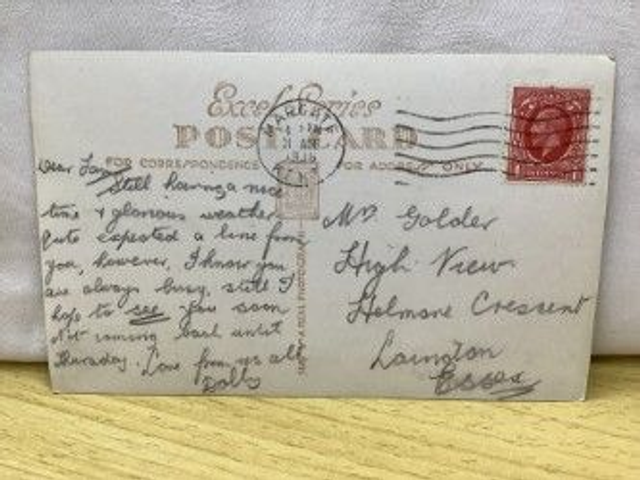 Excel Series
POSTCARD
FOR CORRESPONDENCE
FOR ADDRESS ONLY
MARGATE
Dear
Still having a nice
time & glorious weather
quite expected a line from
you, however, I know you
are always busy, still I
hope to see you soon
Not coming back until
Thursday. Love from us all
Dolly
Mrs Golder
High View
Holmore Crescent
Laington
Essex